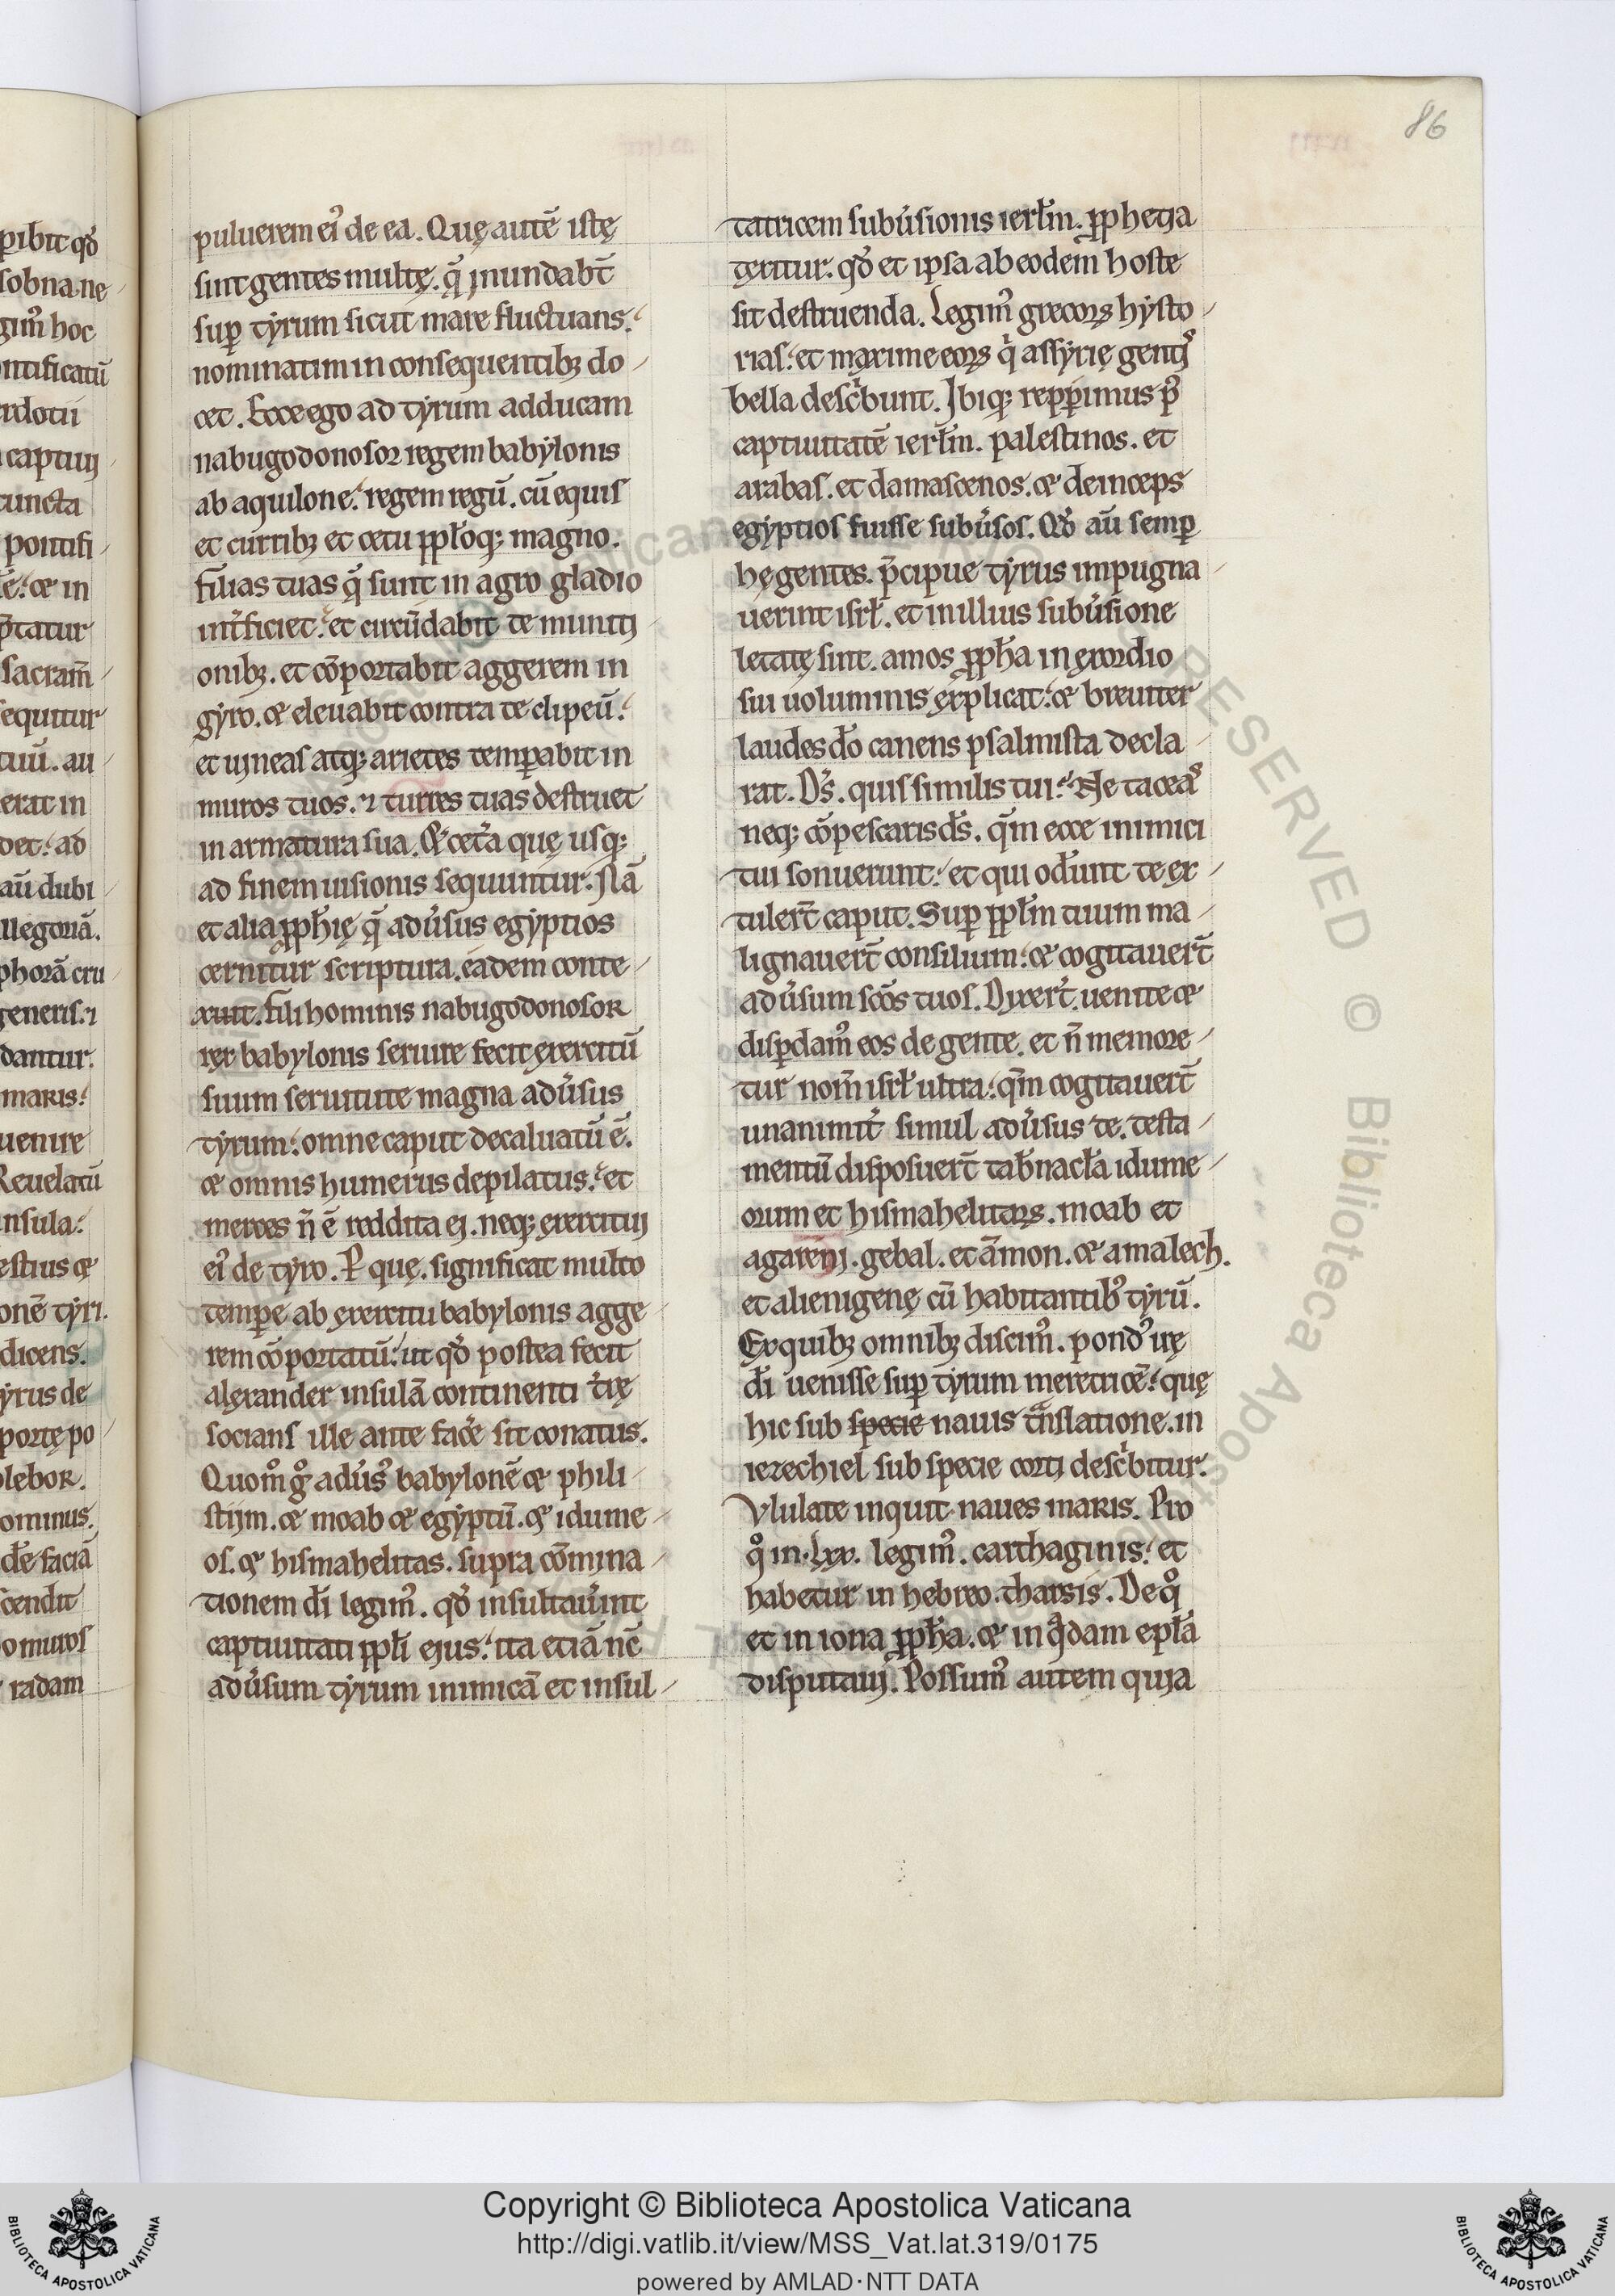 86
puluerem ei᾽ de ea. Quę autē istę
sint gentes multę. q̄ inundabt̄
sup̱ tẏrum sicut mare fluctuans.
nominatim in consequentibꝫ do
cet. Ecce ego ad tẏrum adducam
nabugodonosor regem babẏlonis
ab aquilone. regem regū. cū equis
et curribꝫ et cetu pp̄loqꝫ magno.
filias tuas q̄ sunt in agro gladio
int̄ficiet. et circūdabit te muniti
onibꝫ. et cōportabit aggerem in
gẏro. & eleuabit contra te clipeū.
et uineas atqꝫ arietes temp̱abit in
muros tuos. ⁊ turres tuas destruet
in armatura sua. & cet̄a quę usqꝫ
ad finem uisionis sequuntur. Nā
et alia ꝓph̄ię q̄ adūsus egẏptios
cernitur scriptura. eadem conte
xuit. Fili hominis nabugodonosor
rex babylonis seruire fecit exercitū
suum seruitute magna adūsus
tẏrum. omne caput decaluatū ē.
& omnis humerus depilatus. et
merces n̄ ē reddita ei. neqꝫ exercitui
ei᾽ de tẏro. P̱ quę. significat multo
temp̱e ab exercitu babylonis agge
rem cōportatū. ut qd̄ postea fecit
alexander insulā continenti t̄rę
socians ille ante fac̄e sit conatus.
Quom̊ g̊ adūs᾽ babylonē & phili
stijm. & moab & egẏptū. & idume
os. & hismahelitas. supra cōmina
tionem dī legim᾽. qd̄ insultaūint
captiuitati pp̄li ejus. ita etiā nc̄
adūsum tẏrum inimicā et insul
tatricem subūsionis ierlm̄. ꝓphetia
teritur. qd̄ et ipsa ab eodem hoste
sit destruenda. Legim᾽ grecoꝝ hẏsto
rias. et maxime eoꝝ qⁱ assẏrię gentis
bella descⁱbunt. Ibiqꝫ repp̱imus p᾽
captiuitatē ierlm̄. palestinos. et
arabas. et damascenos. & deinceps
egẏptios fuisse subūsos. Qd̄ aū semp̱
hę gentes. p̄cipue tẏrus impugna
uerint isrl̄. et in illius subūsione
letatę sint. amos ꝓph̄a in exordio
sui uoluminis explicat. & breuiter
laudes dō canens psalmista decla
rat. Ds̄. quis similis tui? Ne taceas
neqꝫ cōpescaris ds̄. qm̄ ecce inimici
tui sonuerunt. et qui od̄unt te ex
tulert̄ caput. Sup̱ pp̄lm tuum ma
lignauert̄ consilium. & cogitauert̄
adūsum sc̄os tuos. Dixert̄. uenite &
disp̱dam᾽ eos de gente. et n̄ memore
tur nom̄ isrl̄ ultra. qm̄ cogitauert̄
unanimit̄ simul adūsus te. testa
mentū disposuert̄ tab̄nacl̄a idume
orum et hismahelitaꝝ. moab et
agareni. gebal. et āmon. & amalech.
et alienigenę cū habitantib᾽ tẏrū.
Ex quibꝫ omnibꝫ discim᾽. pond᾽ irę
dī uenisse sup̱ tẏrum meretricē. quę
hic sub specie nauis tᵃnslatione. in
iezechiel sub specie corti descⁱbitur.
Vlulate inquit naues maris. Pro
q̊ in .lxx. legim᾽. carthaginis. et
habetur in hebreo. tharsis. De q̊
et in iona ꝓph̄a. & in qᵃdam epl̄a
disputaui. Possum᾽ autem quia
Copyright © Biblioteca Apostolica Vaticana
http://digi.vatlib.it/view/MSS_Vat.lat.319/0175
powered by AMLAD·NTT DATA